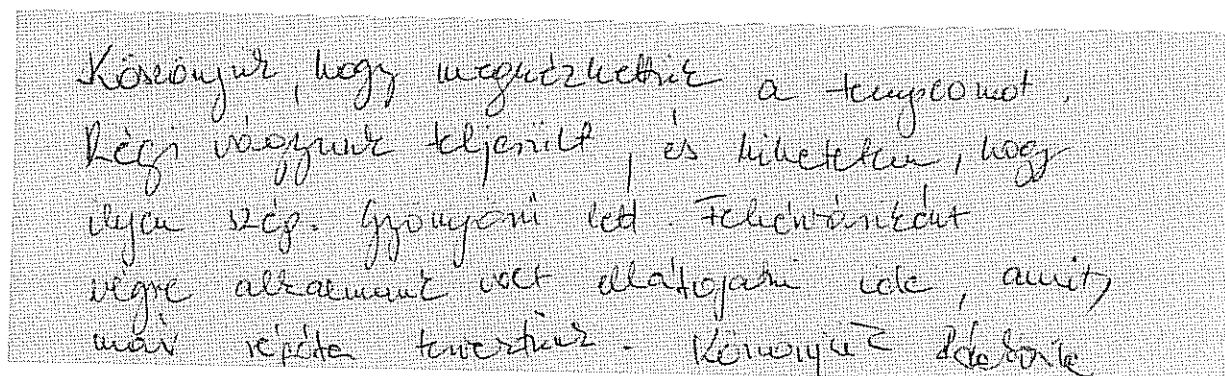 Köszönjük, hogy megnézhettük a templomot.
Régi vágyunk teljesült, és hihetetlen, hogy
ilyen szép. Gyönyörű lett. Fehérváriként
végre alkalmunk volt ellátogatni ide, amit
már régóta terveztünk. Köszönjük